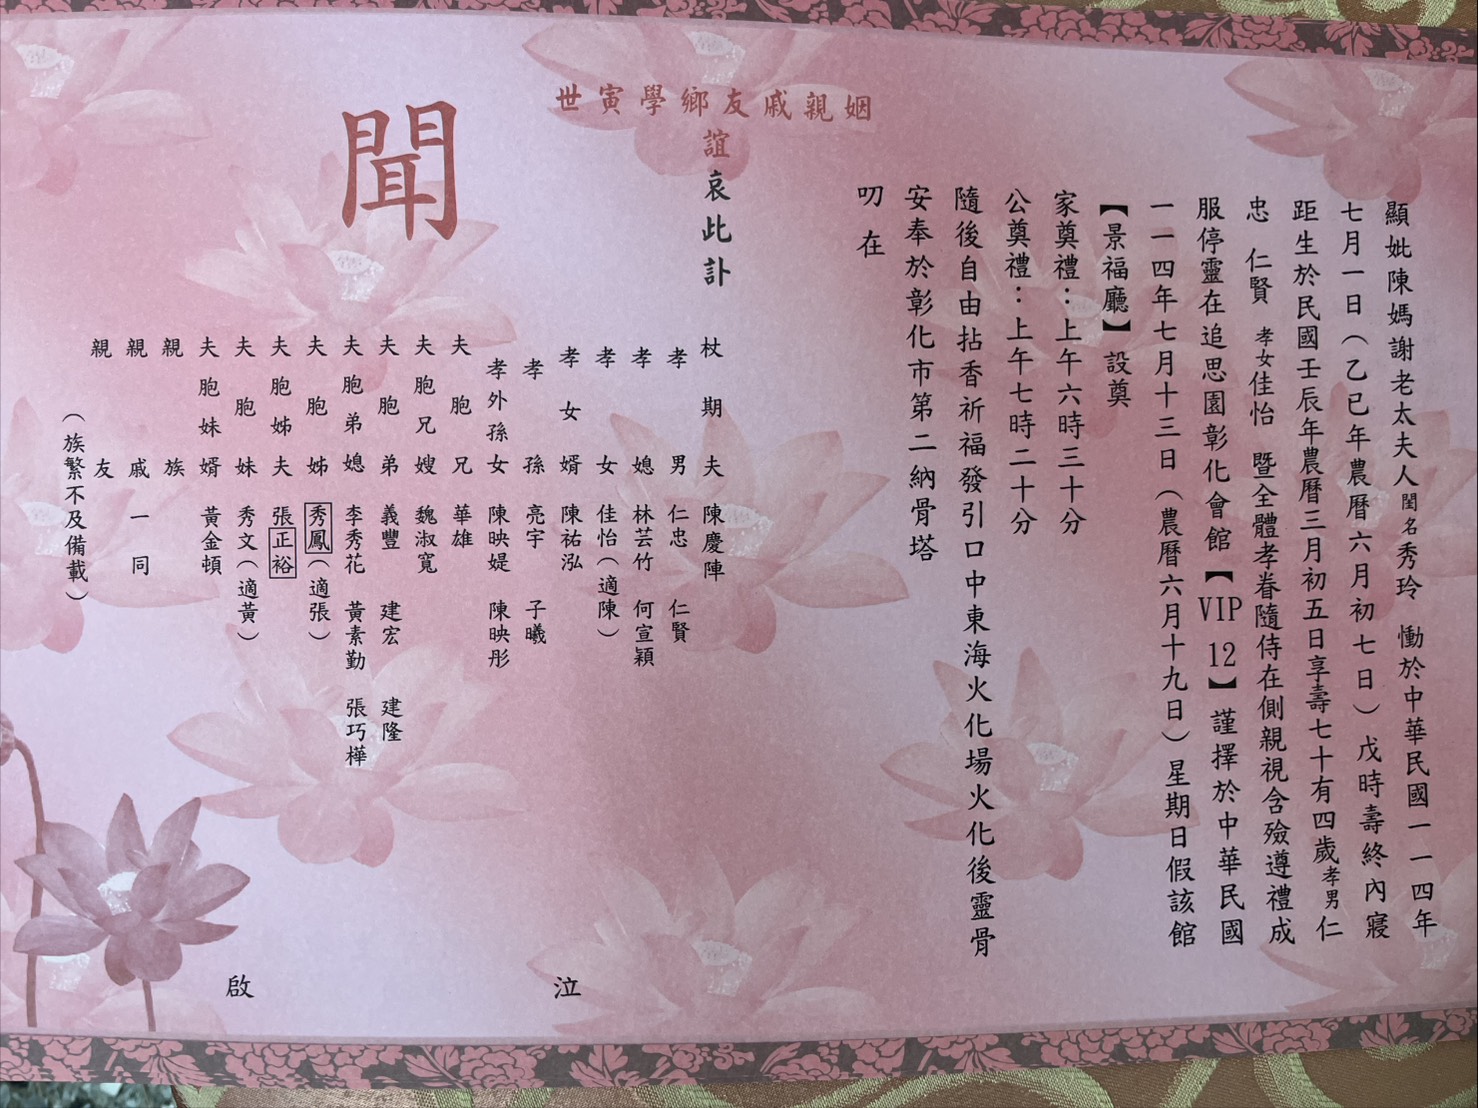 顯妣陳媽謝老太夫人閨名秀玲 慟於中華民國一一四年
七月一日（乙巳年農曆六月初七日）戊時壽終內寢
距生於民國壬辰年農曆三月初五日享壽七十有四歲孝男仁
忠 仁賢 孝女佳怡 暨全體孝眷隨侍在側親視含殮遵禮成
服停靈在追思園彰化會館【VIP 12】謹擇於中華民國
一一四年七月十三日（農曆六月十九日）星期日假該館
【景福廳】設奠
家奠禮：上午六時三十分
公奠禮：上午七時二十分
隨後自由拈香祈福發引口中東海火化場火化後靈骨
安奉於彰化市第二納骨塔
叨在
姻親戚友鄉學寅世
誼哀此訃
聞
杖期夫 陳慶陣
孝男 仁忠 仁賢
孝媳 林芸竹 何宣穎
孝女 佳怡（適陳）
孝女婿 陳祐泓
孝孫 亮宇 子曦
孝外孫女 陳映媞 陳映彤
夫胞兄 華雄
夫胞兄嫂 魏淑寬
夫胞弟 義豐 建宏 建隆
夫胞弟媳 李秀花 黃素勤 張巧樺
夫胞姊 秀鳳（適張）
夫胞姊夫 張正裕
夫胞妹 秀文（適黃）
夫胞妹婿 黃金頓
親族
親戚一同
親友
（族繁不及備載）
泣
啟